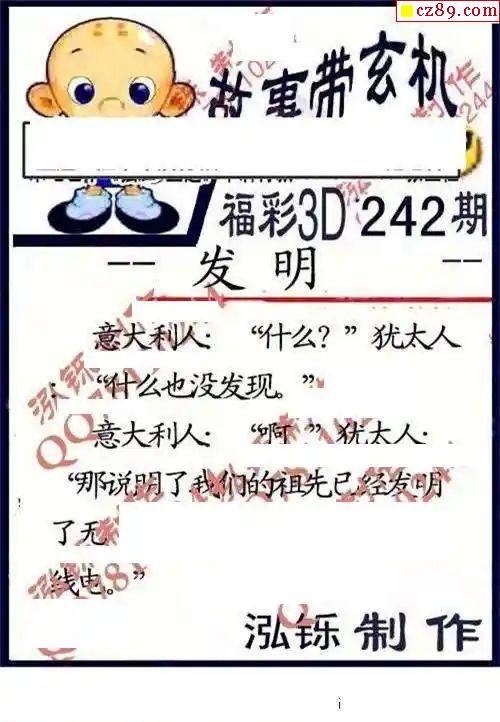 cz89.com
故事带玄机
福彩3D 242期
-- 发明 --
意大利人：“什么？”犹太人
：“什么也没发现。”
意大利人：“啊 ”犹太人：
“那说明了我们的祖先已经发明
了无
线电。”
泓铄制作
i